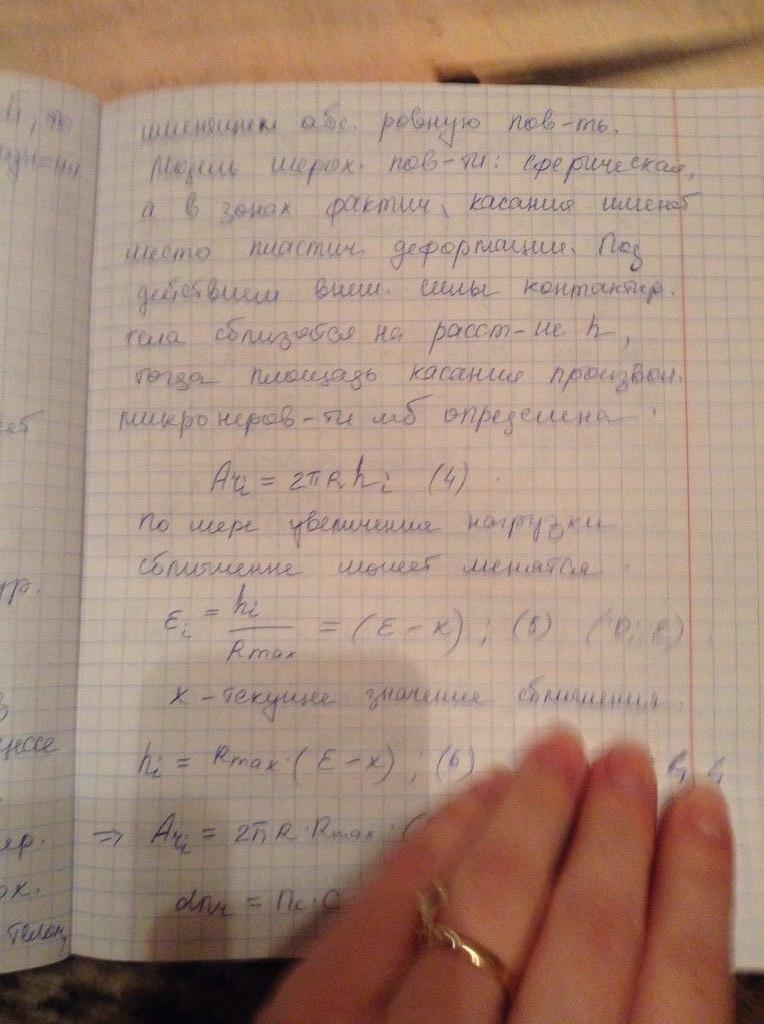 имеющем абс. ровную пов-ть.
Модель шерох. пов-ти: сферическая,
а в зонах фактич. касания имеет
место пластич. деформации. Под
действием внеш. силы контактир.
тела сблизятся на расст-ие h,
тогда площадь касания произвол.
микронеров-ти мб определена:
Ari = 2πRhi (4)
По мере увеличения нагрузки
сближение может менятся
εi = hi / Rmax = (ε - x); (5)
x - текущее значение сближения.
hi = Rmax · (ε - x); (6)
⇒ Ari = 2πR · Rmax · (
dnr = nc · C
ер.
ок.
телом